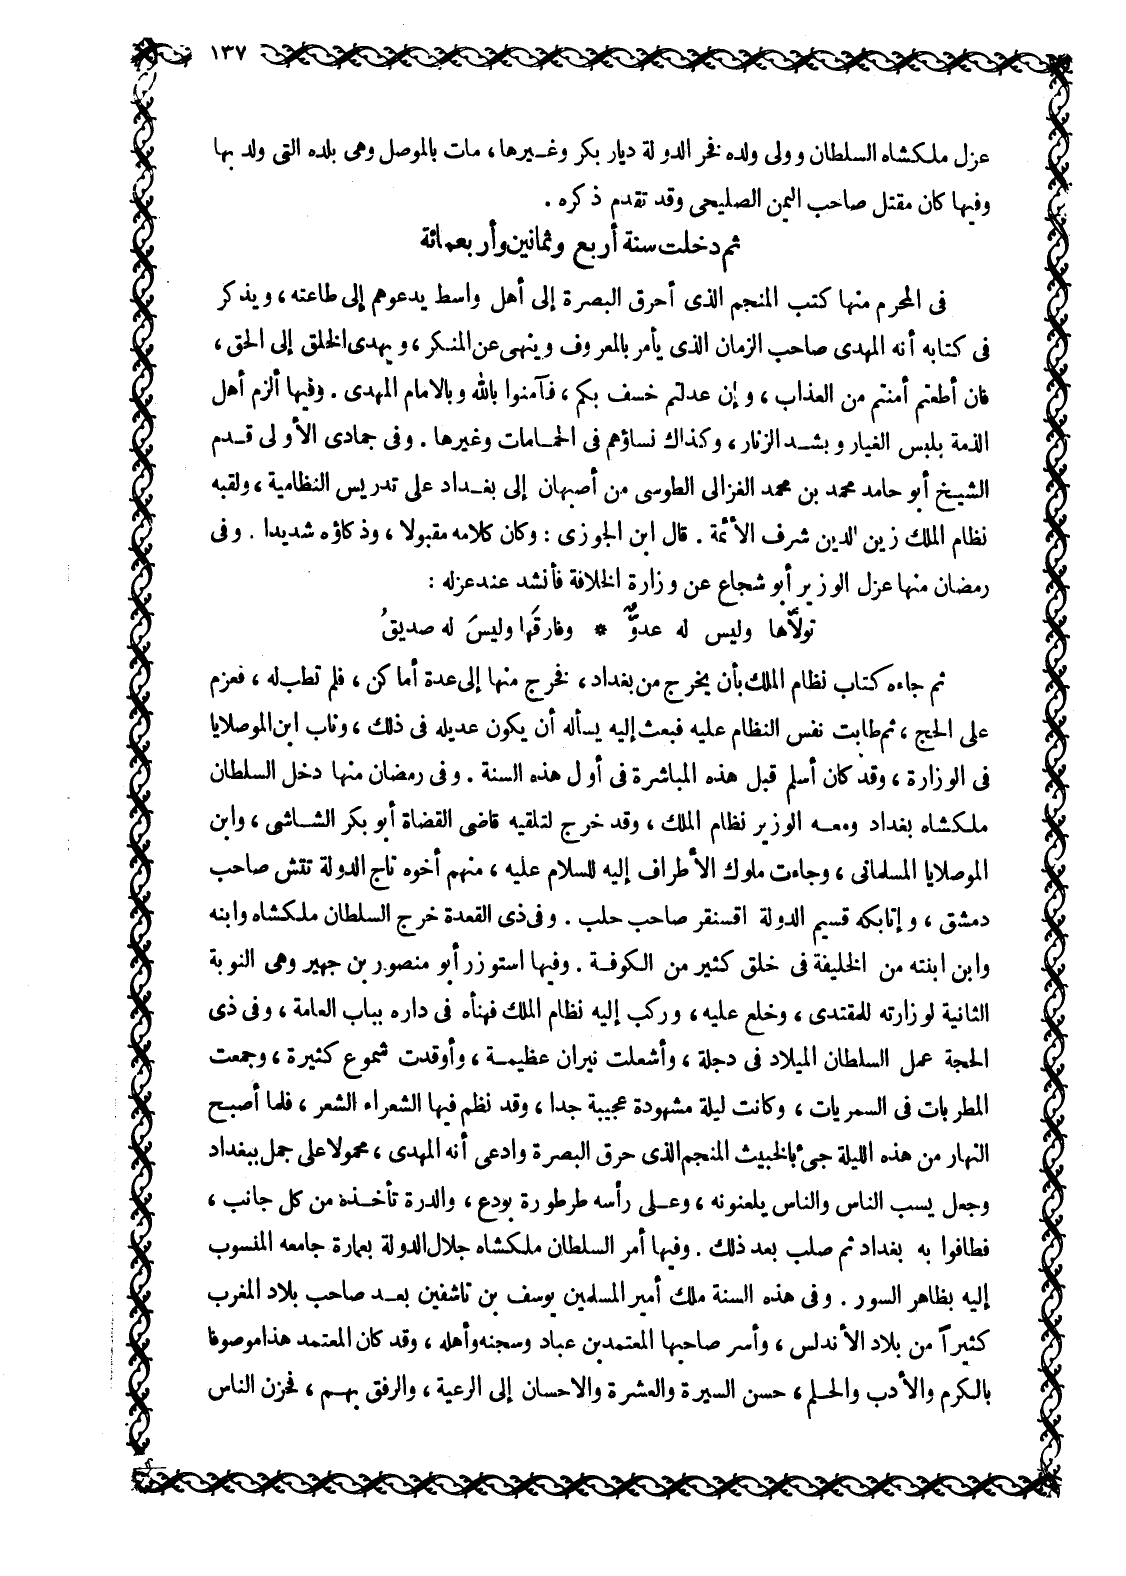 ١٣٧
عزل ملكشاه السلطان وولى ولده فخر الدولة ديار بكر وغيرها، مات بالموصل وهى بلده التى ولد بها
وفيها كان مقتل صاحب اليمن الصليحى وقد تقدم ذكره .
ثم دخلت سنة أربع وثمانين وأربعمائة
فى المحرم منها كتب المنجم الذى أحرق البصرة إلى أهل واسط يدعوهم إلى طاعته، ويذكر
فى كتابه أنه المهدى صاحب الزمان الذى يأمر بالمعروف وينهى عن المنكر، ويهدى الخلق إلى الحق،
فان أطعتم أمنتم من العذاب، وإن عدلتم خسف بكم، فآمنوا بالله وبالامام المهدى . وفيها ألزم أهل
الذمة بلبس الغيار وبشد الزنار، وكذلك نساؤهم فى الحمامات وغيرها . وفى جمادى الأولى قدم
الشيخ أبو حامد محمد بن محمد الغزالى الطوسى من أصبهان إلى بغداد على تدريس النظامية، ولقبه
نظام الملك زين الدين شرف الأئمة . قال ابن الجوزى : وكان كلامه مقبولا، وذكاؤه شديدا . وفى
رمضان منها عزل الوزير أبو شجاع عن وزارة الخلافة فأنشد عند عزله :
تولَّاها وليس له عدوٌّ * وفارقَها وليسَ له صديقُ
ثم جاءه كتاب نظام الملك بأن يخرج من بغداد، فخرج منها إلى عدة أماكن، فلم تطب له، فعزم
على الحج، ثم طابت نفس النظام عليه فبعث إليه يسأله أن يكون عديله فى ذلك، وناب ابن الموصلايا
فى الوزارة، وقد كان أسلم قبل هذه المباشرة فى أول هذه السنة . وفى رمضان منها دخل السلطان
ملكشاه بغداد ومعه الوزير نظام الملك، وقد خرج لتلقيه قاضى القضاة أبو بكر الشاشى، وابن
الموصلايا المسلمانى، وجاءت ملوك الأطراف إليه للسلام عليه، منهم أخوه تاج الدولة تتش صاحب
دمشق، وإتابكه قسيم الدولة اقسنقر صاحب حلب . وفى ذى القعدة خرج السلطان ملكشاه وابنه
وابن ابنته من الخليفة فى خلق كثير من الكوفة . وفيها استوزر أبو منصور بن جهير وهى النوبة
الثانية لوزارته للمقتدى، وخلع عليه، وركب إليه نظام الملك فهنأه فى داره بباب العامة، وفى ذى
الحجة عمل السلطان الميلاد فى دجلة، وأشعلت نيران عظيمة، وأوقدت شموع كثيرة، وجمعت
المطربات فى السمريات، وكانت ليلة مشهودة عجيبة جدا، وقد نظم فيها الشعراء الشعر، فلما أصبح
النهار من هذه الليلة جىء بالخبيث المنجم الذى حرق البصرة وادعى أنه المهدى، محمولا على جمل ببغداد
وجعل يسب الناس والناس يلعنونه، وعلى رأسه طرطورة بودع، والدرة تأخذه من كل جانب،
فطافوا به بغداد ثم صلب بعد ذلك . وفيها أمر السلطان ملكشاه جلال الدولة بعمارة جامعه المنسوب
إليه بظاهر السور . وفى هذه السنة ملك أمير المسلمين يوسف بن تاشفين بعد صاحب بلاد المغرب
كثيراً من بلاد الأندلس، وأسر صاحبها المعتمد بن عباد وسجنه وأهله، وقد كان المعتمد هذا موصوفا
بالكرم والأدب والحلم، حسن السيرة والعشرة والاحسان إلى الرعية، والرفق بهم، فحزن الناس